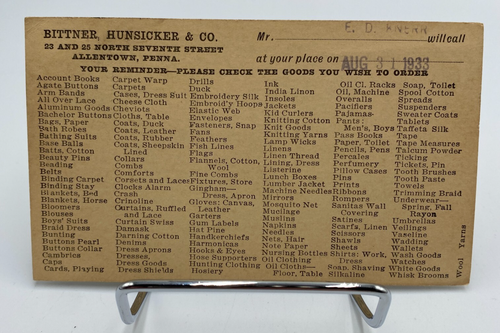 BITTNER, HUNSICKER & CO.
23 AND 25 NORTH SEVENTH STREET
ALLENTOWN, PENNA.
Mr. E. D. will call
at your place on AUG 31 1933
YOUR REMINDER—PLEASE CHECK THE GOODS YOU WISH TO ORDER
Account Books
Agate Buttons
Arm Bands
All Over Lace
Aluminum Goods
Bachelor Buttons
Bags, Paper
Bath Robes
Bathing Suits
Base Balls
Batts, Cotton
Beauty Pins
Beading
Belts
Binding Carpet
Binding Stay
Blankets, Bed
Blankets, Horse
Bloomers
Blouses
Boys' Suits
Braid Dress
Bunting
Buttons Pearl
Buttons Collar
Cambrics
Caps
Cards, Playing
Carpet Warp
Carpets
Cases, Dress Suit
Cheese Cloth
Cheviots
Cloths, Table
Coats, Duck
Coats, Leather
Coats, Rubber
Coats, Sheepskin
Lined
Cotton
Collars
Combs
Comforts
Corsets and Laces
Clocks Alarm
Crash
Crinoline
Curtains, Ruffled
and Lace
Curtain Swiss
Damask
Darning Cotton
Denims
Dress Aprons
Dresses
Dress Goods
Dress Shields
Drills
Duck
Embroidery Silk
Embroid'y Hoops
Elastic Web
Envelopes
Fasteners, Snap
Fans
Feathers
Fish Lines
Flags
Flannels, Cotton,
Wool
Fine Combs
Fixtures, Store
Gingham—
Dress, Apron
Gloves; Canvas,
Leather
Garters
Gum Labels
Hat Pins
Handkerchiefs
Harmonicas
Hooks & Eyes
Hose Supporters
Hunting Clothing
Hosiery
Ink
India Linen
Insoles
Jackets
Kid Curlers
Knitting Cotton
Knit Goods
Knitting Yarns
Lamp Wicks
Linens
Linen Thread
Lining, Dress
Listerine
Lunch Boxes
Lumber Jackets
Machine Needles
Mirrors
Mosquito Net
Mucilage
Muslins
Napkins
Needles
Nets, Hair
Note Paper
Nursing Bottles
Oil Clothing
Oil Cloths—
Floor, Table
Oil Cl. Racks
Oil, Machine
Overalls
Pacifiers
Pajamas
Pants:
Men's, Boys
Pass Books
Paper, Toilet
Pencils, Pens
Percale
Perfumery
Pins
Pillow Cases
Prints
Ribbons
Rompers
Sanitary Wall
Covering
Satines
Scarfs, Linen
Scissors
Shawls
Sheets
Shirts: Work,
Dress
Soap, Shaving
Silkaline
Soap, Toilet
Spool Cotton
Spreads
Suspenders
Sweater Coats
Tablets
Taffeta Silk
Tape
Tape Measures
Talcum Powder
Ticking
Tickets, Pin
Tooth Brushes
Tooth Paste
Towels
Trimming Braid
Underwear—
Spring, Fall
Rayon
Umbrellas
Veilings
Vaseline
Wadding
Wallets
Wash Goods
Watches
White Goods
Whisk Brooms
Wool Yarns